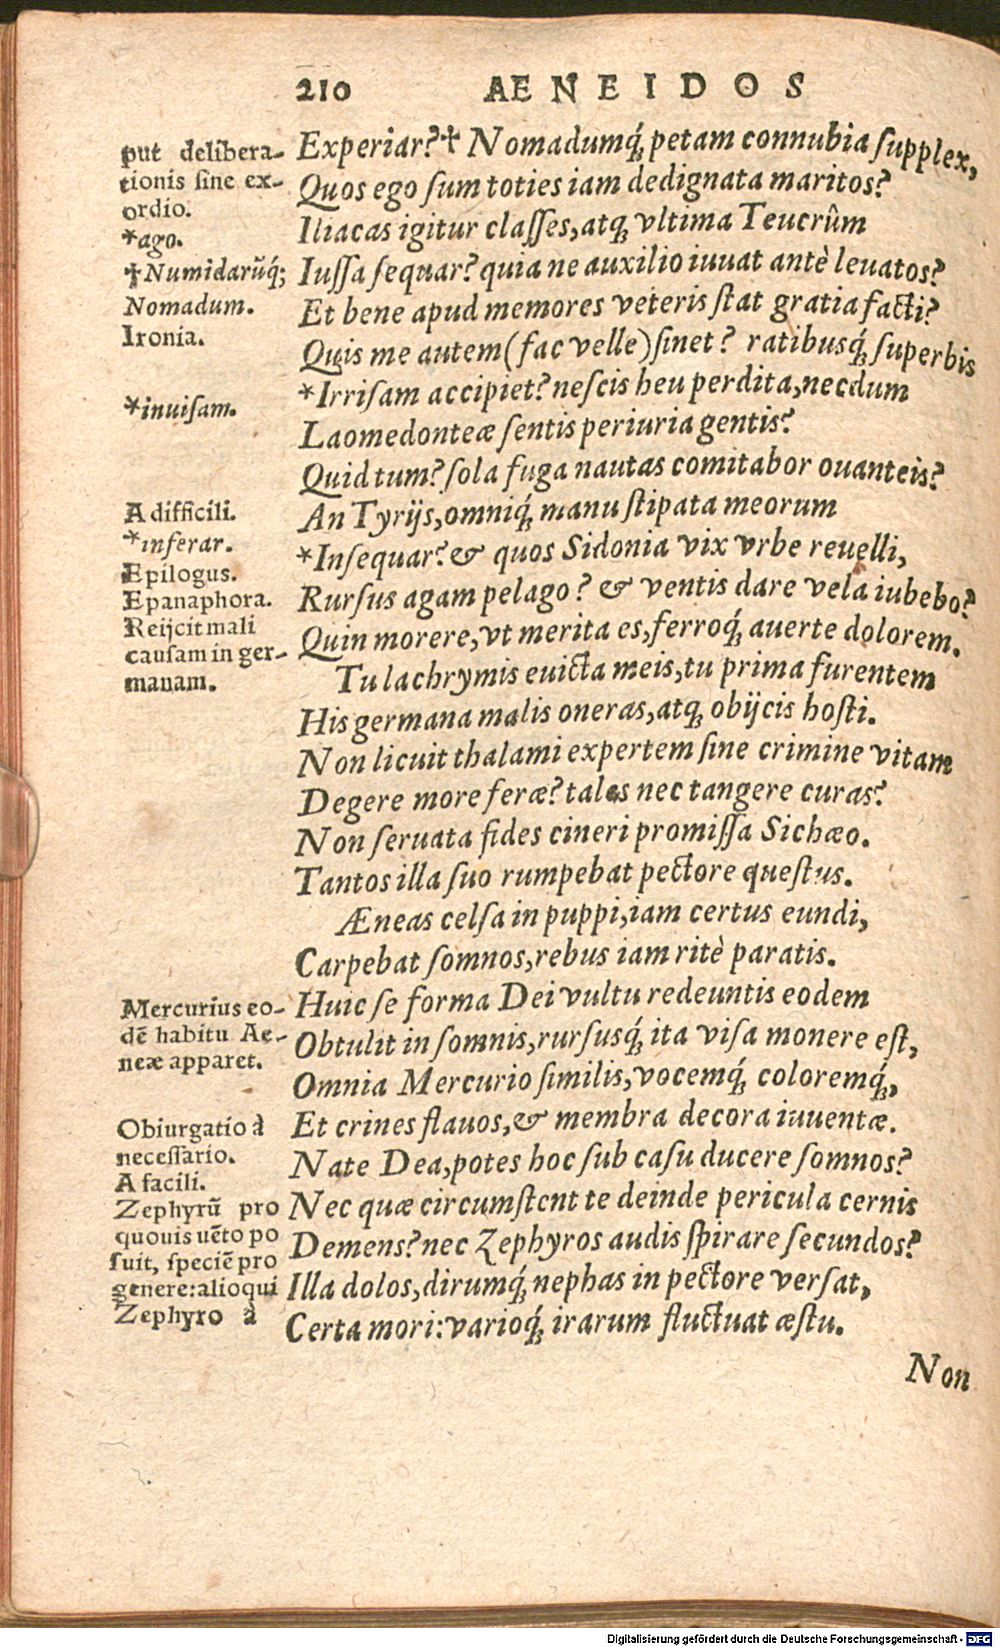 210 AENEIDOS
put delibera-
tionis sine ex-
ordio.
*ago.
†Numidarũq́;
Nomadum.
Ironia.
*inuisam.
A difficili.
*inferar.
Epilogus.
Epanaphora.
Reijcit mali
causam in ger-
manam.
Mercurius eo-
dẽ habitu Ae-
neæ apparet.
Obiurgatio à
necessario.
A facili.
Zephyrũ pro
quouis uẽto po
suit, speciẽ pro
genere: alioqui
Zephyro à
Experiar?† Nomadumq́; petam connubia supplex,
Quos ego sum toties iam dedignata maritos?
Iliacas igitur classes, atq; vltima Teucrûm
Iussa sequar? quia ne auxilio iuuat antè leuatos?
Et bene apud memores veteris stat gratia facti?
Quis me autem (fac velle) sinet? ratibusq́; superbis
*Irrisam accipiet? nescis heu perdita, necdum
Laomedonteæ sentis periuria gentis?
Quid tum? sola fuga nautas comitabor ouanteis?
An Tyrijs, omniq́; manu stipata meorum
*Insequar? & quos Sidonia vix vrbe reuelli,
Rursus agam pelago? & ventis dare vela iubebo?
Quin morere, vt merita es, ferroq́; auerte dolorem.
Tu lachrymis euicta meis, tu prima furentem
His germana malis oneras, atq; obijcis hosti.
Non licuit thalami expertem sine crimine vitam
Degere more feræ? tales nec tangere curas?
Non seruata fides cineri promissa Sichæo.
Tantos illa suo rumpebat pectore questus.
Æneas celsa in puppi, iam certus eundi,
Carpebat somnos, rebus iam ritè paratis.
Huic se forma Dei vultu redeuntis eodem
Obtulit in somnis, rursusq́; ita visa monere est,
Omnia Mercurio similis, vocemq́; coloremq́;,
Et crines flauos, & membra decora iuuentæ.
Nate Dea, potes hoc sub casu ducere somnos?
Nec quæ circumstent te deinde pericula cernis
Demens? nec Zephyros audis spirare secundos?
Illa dolos, dirumq́; nephas in pectore versat,
Certa mori: varioq́; irarum fluctuat æstu.
Non
Digitalisierung gefördert durch die Deutsche Forschungsgemeinschaft - DFG